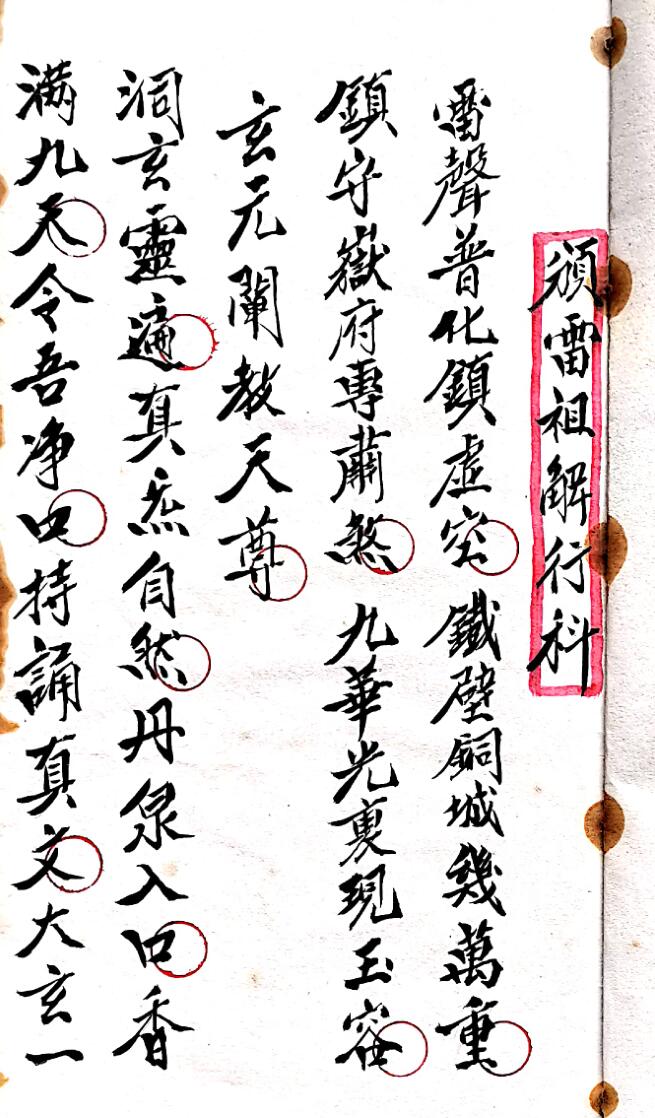 頒雷祖解行科
雷聲普化鎮虛空 鐵壁銅城幾萬重
鎮守嶽府專肅煞 九華光裏現玉容
玄元闡教天尊
洞玄靈遍真炁自然丹泉入口香
滿九天令吾净口持誦真文大玄一